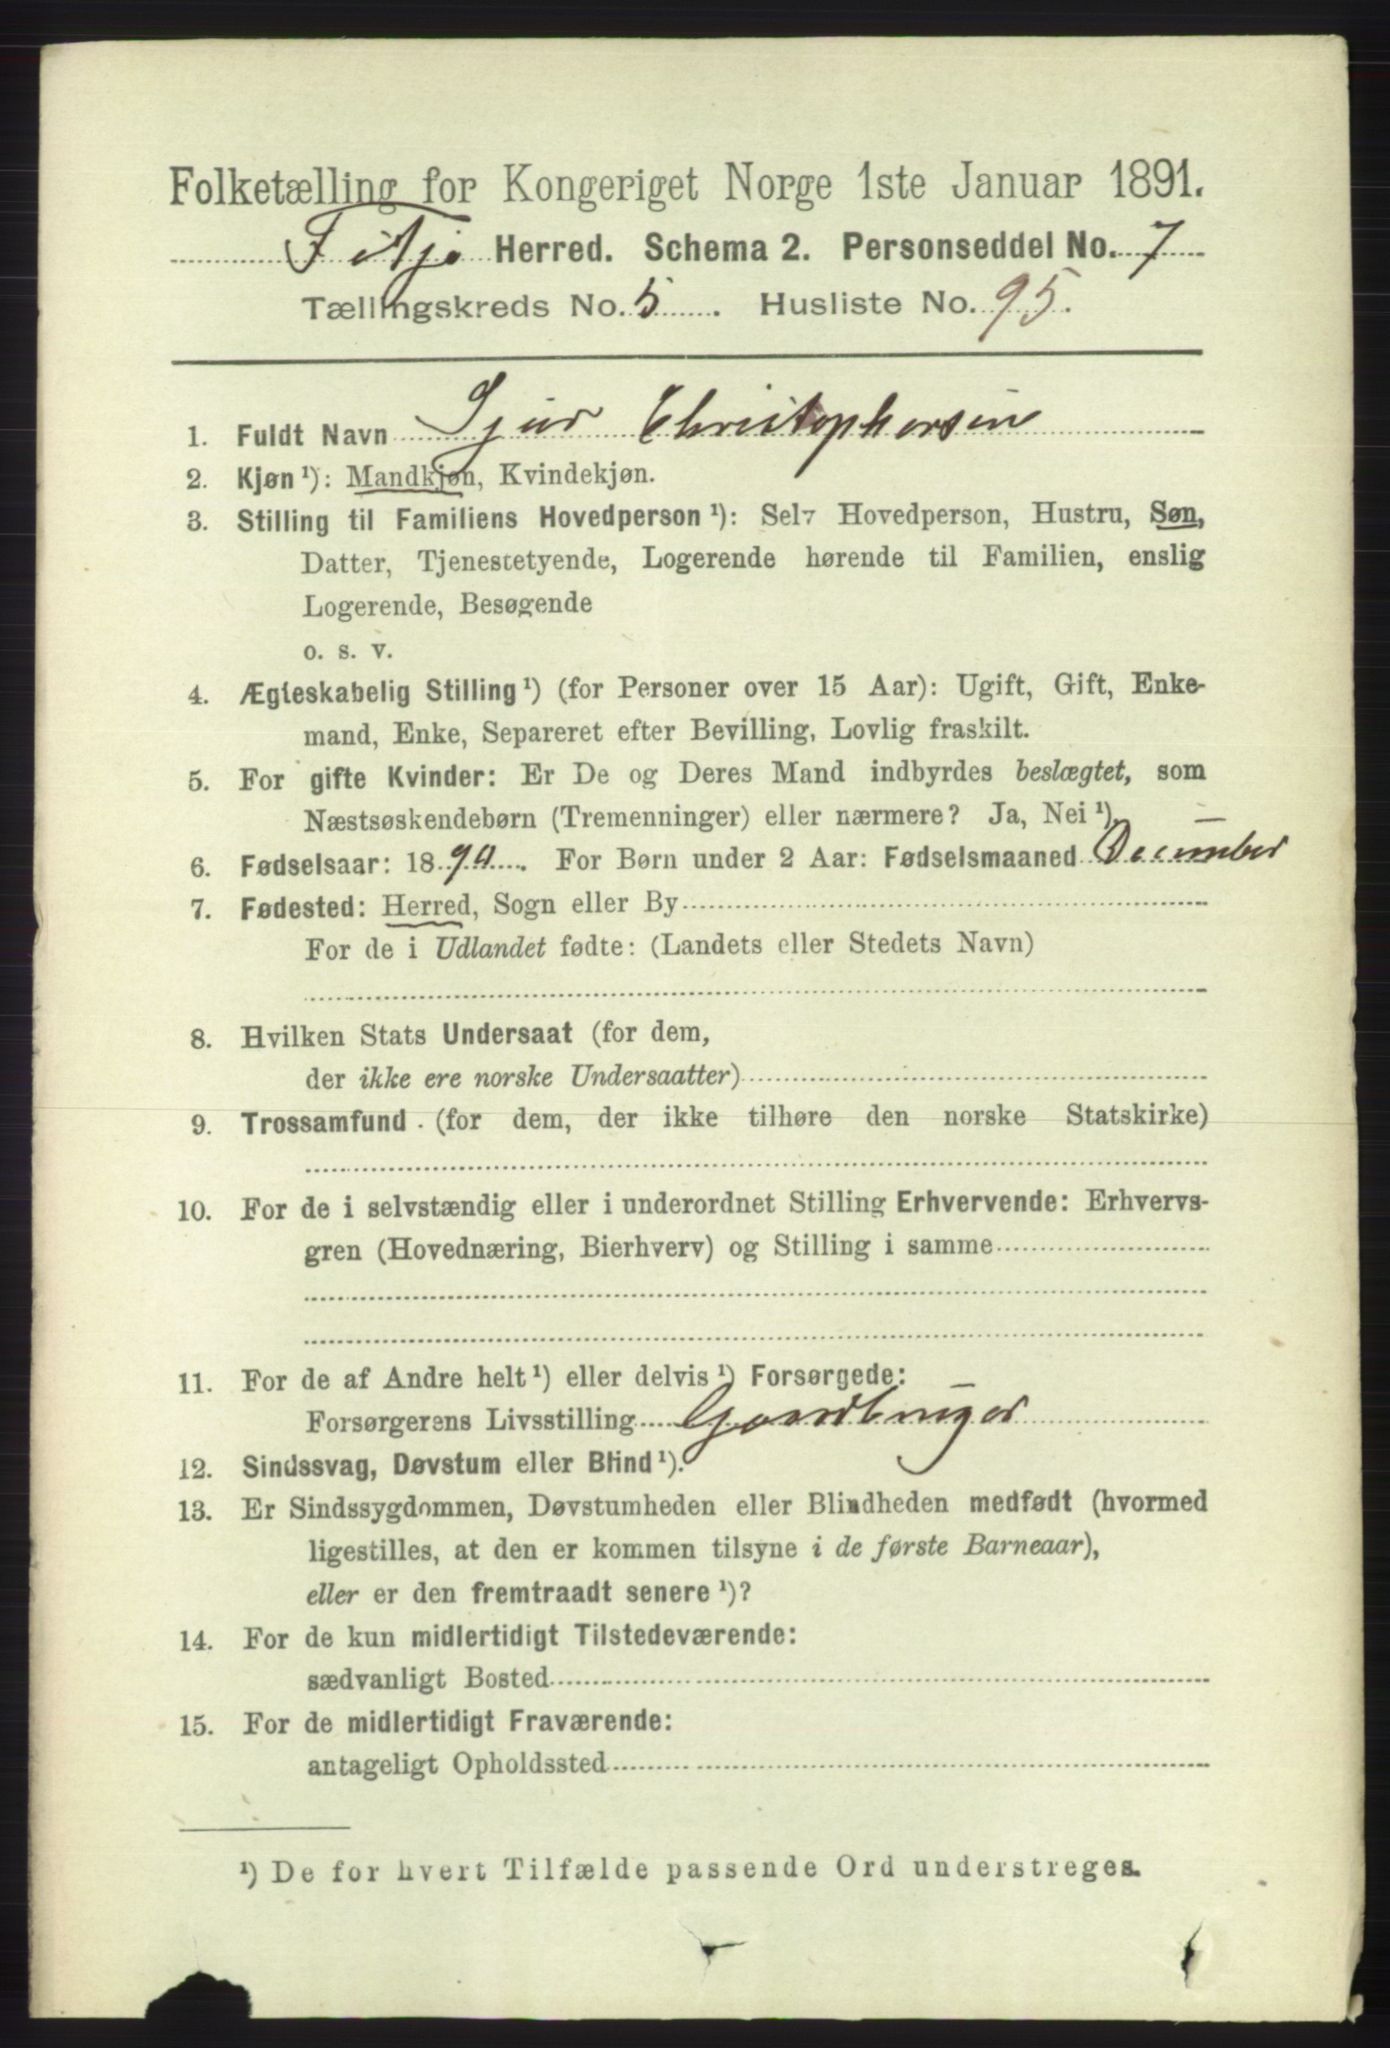 Folketælling for Kongeriget Norge 1ste Januar 1891.
Fitje Herred. Schema 2. Personseddel No. 7
Tællingskreds No. 5. Husliste No. 95.
1. Fuldt Navn Sjur Christophersen
2. Kjøn ¹): Mandkjøn, Kvindekjøn.
3. Stilling til Familiens Hovedperson ¹): Selv Hovedperson, Hustru, Søn,
Datter, Tjenestetyende, Logerende hørende til Familien, enslig
Logerende, Besøgende
o. s. v.
4. Ægteskabelig Stilling ¹) (for Personer over 15 Aar): Ugift, Gift, Enke-
mand, Enke, Separeret efter Bevilling, Lovlig fraskilt.
5. For gifte Kvinder: Er De og Deres Mand indbyrdes beslægtet, som
Næstsøskendebørn (Tremenninger) eller nærmere? Ja, Nei ¹).
6. Fødselsaar: 1890. For Børn under 2 Aar: Fødselsmaaned December
7. Fødested: Herred, Sogn eller By
For de i Udlandet fødte: (Landets eller Stedets Navn)
8. Hvilken Stats Undersaat (for dem,
der ikke ere norske Undersaatter)
9. Trossamfund (for dem, der ikke tilhøre den norske Statskirke)
10. For de i selvstændig eller i underordnet Stilling Erhvervende: Erhvervs-
gren (Hovednæring, Bierhverv) og Stilling i samme
11. For de af Andre helt ¹) eller delvis ¹) Forsørgede:
Forsørgerens Livsstilling Gaardbruger
12. Sindssvag, Døvstum eller Blind ¹).
13. Er Sindssygdommen, Døvstumheden eller Blindheden medfødt (hvormed
ligestilles, at den er kommen tilsyne i de første Barneaar),
eller er den fremtraadt senere ¹)?
14. For de kun midlertidigt Tilstedeværende:
sædvanligt Bosted
15. For de midlertidigt Fraværende:
antageligt Opholdssted
¹) De for hvert Tilfælde passende Ord understreges.